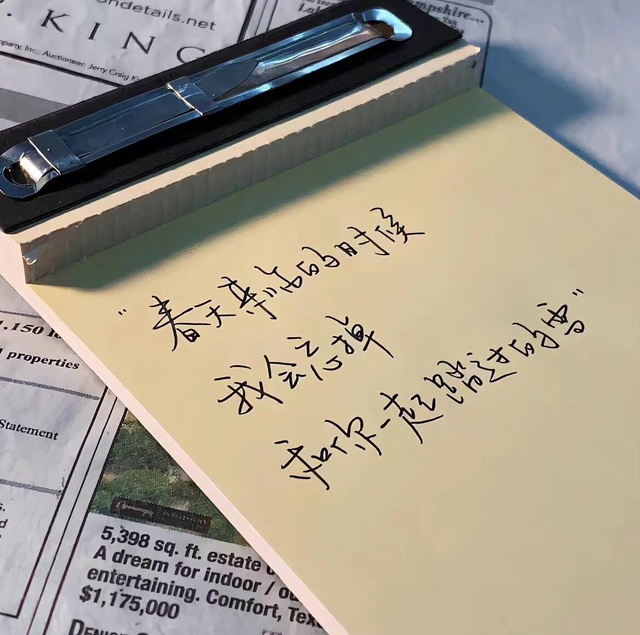 ondetails.net
KING
Inc; Auctioneer: Jerry Craig
mpshire...
"春天来临的时候
我会忘掉
和你一起踏过的雪"
1.150
properties
Statement
5,398 sq. ft. estate
A dream for indoor / ou
entertaining. Comfort, Tex
$1,175,000